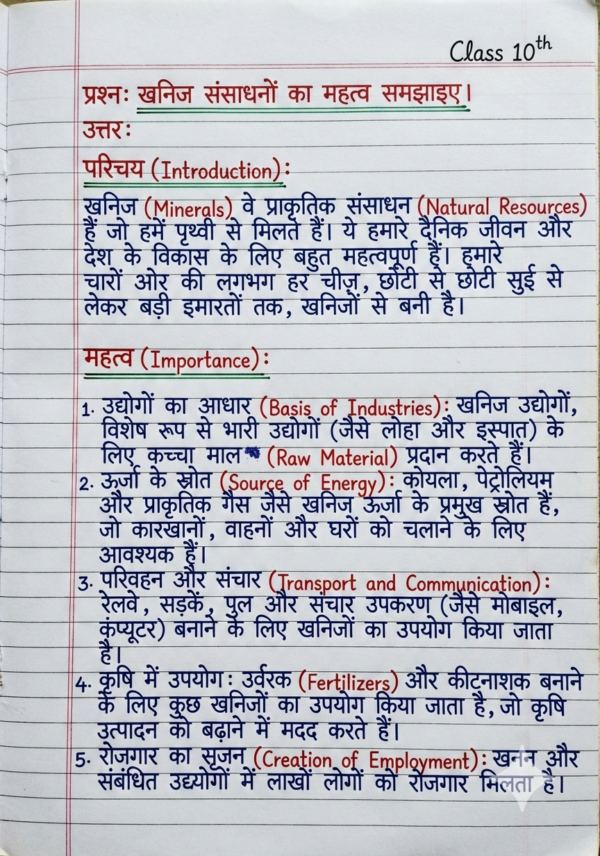 Class 10th
प्रश्नः खनिज संसाधनों का महत्व समझाइए।
उत्तरः
परिचय (Introduction):
खनिज (Minerals) वे प्राकृतिक संसाधन (Natural Resources)
हैं जो हमें पृथ्वी से मिलते हैं। ये हमारे दैनिक जीवन और
देश के विकास के लिए बहुत महत्वपूर्ण हैं। हमारे
चारों ओर की लगभग हर चीज़, छोटी से छोटी सुई से
लेकर बड़ी इमारतों तक, खनिजों से बनी है।
महत्व (Importance):
1. उद्योगों का आधार (Basis of Industries): खनिज उद्योगों,
विशेष रूप से भारी उद्योगों (जैसे लोहा और इस्पात) के
लिए कच्चा माल (Raw Material) प्रदान करते हैं।
2. ऊर्जा के स्रोत (Source of Energy): कोयला, पेट्रोलियम
और प्राकृतिक गैस जैसे खनिज ऊर्जा के प्रमुख स्रोत हैं,
जो कारखानों, वाहनों और घरों को चलाने के लिए
आवश्यक हैं।
3. परिवहन और संचार (Transport and Communication):
रेलवे, सड़कें, पुल और संचार उपकरण (जैसे मोबाइल,
कंप्यूटर) बनाने के लिए खनिजों का उपयोग किया जाता
है।
4. कृषि में उपयोगः उर्वरक (Fertilizers) और कीटनाशक बनाने
के लिए कुछ खनिजों का उपयोग किया जाता है, जो कृषि
उत्पादन को बढ़ाने में मदद करते हैं।
5. रोजगार का सृजन (Creation of Employment): खनन और
संबंधित उद्योगों में लाखों लोगों को रोजगार मिलता है।